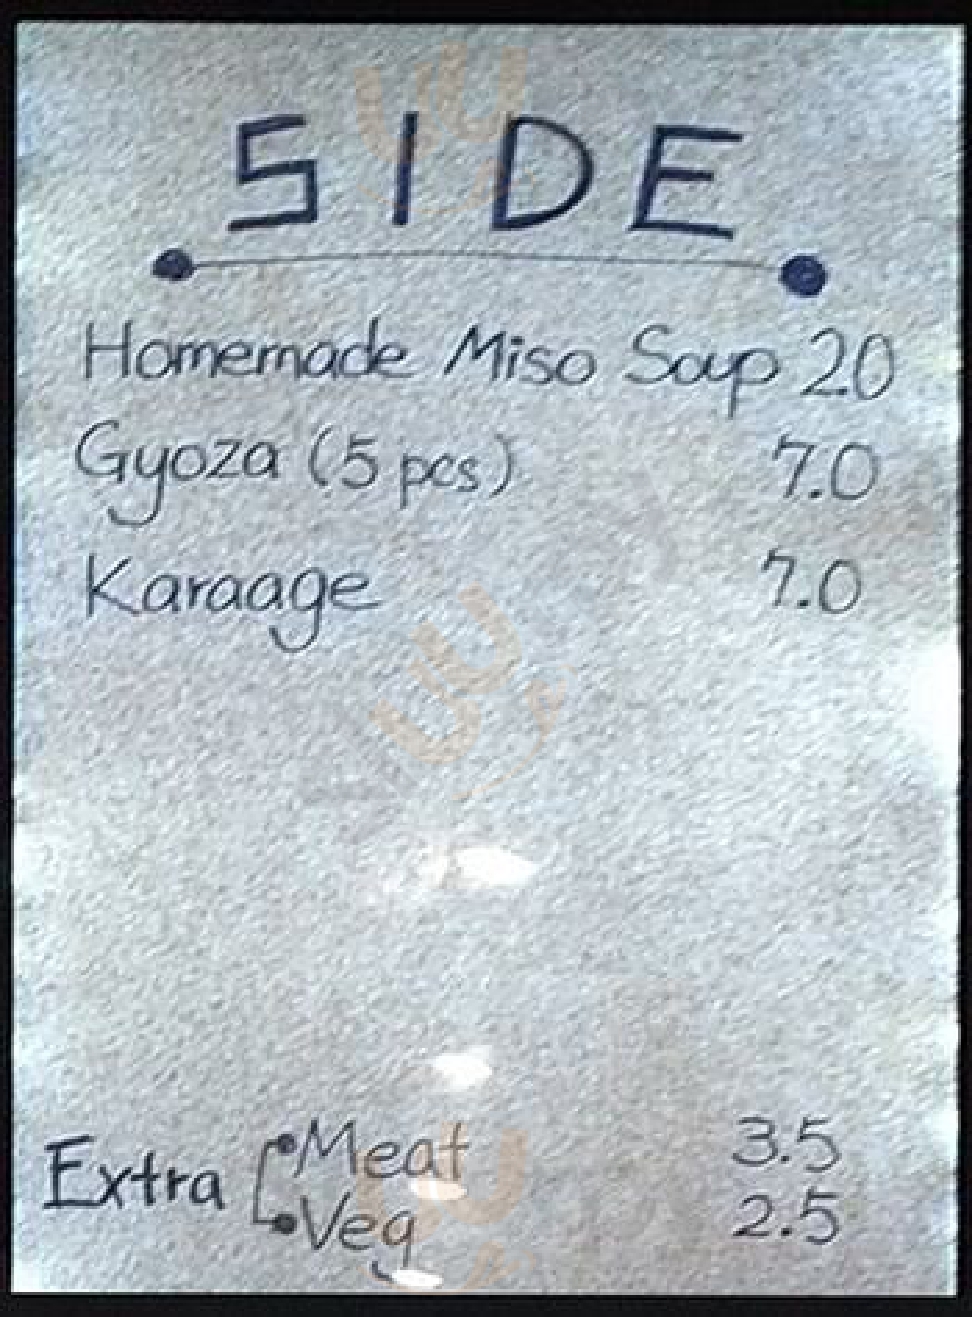 SIDE
Homemade Miso Soup 2.0
Gyoza (5 pcs) 7.0
Karaage 7.0
Extra
Meat 3.5
Veg 2.5